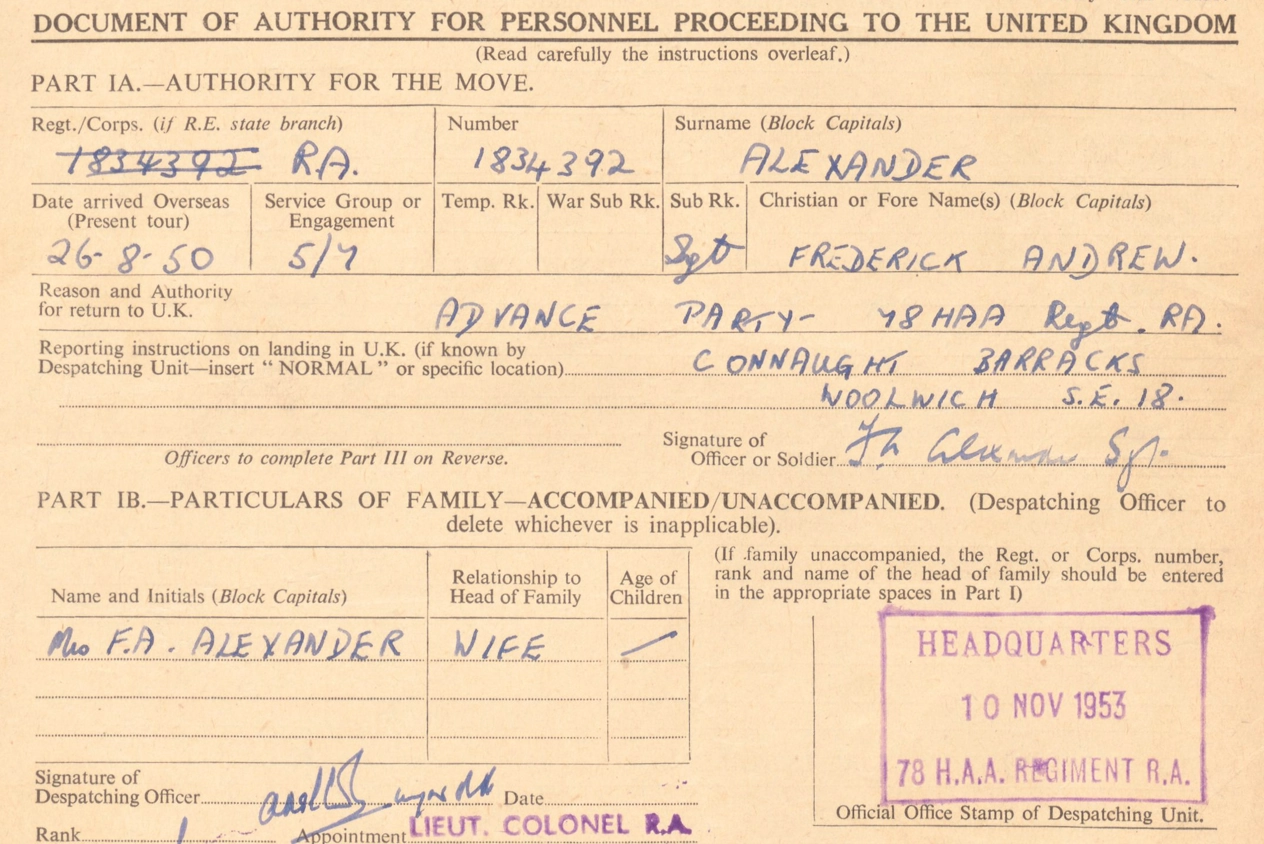 DOCUMENT OF AUTHORITY FOR PERSONNEL PROCEEDING TO THE UNITED KINGDOM
(Read carefully the instructions overleaf.)
PART IA.—AUTHORITY FOR THE MOVE.
Regt./Corps. (if R.E. state branch) Number Surname (Block Capitals)
1834392 R.A. 1834392 ALEXANDER
Date arrived Overseas Service Group or Temp. Rk. War Sub Rk. Sub Rk. Christian or Fore Name(s) (Block Capitals)
(Present tour) Engagement
26-8-50 5/7 Sgt FREDERICK ANDREW.
Reason and Authority
for return to U.K. ADVANCE PARTY- 78 HAA Regt. RA.
Reporting instructions on landing in U.K. (if known by
Despatching Unit—insert "NORMAL" or specific location) CONNAUGHT BARRACKS
WOOLWICH S.E. 18.
Signature of
Officers to complete Part III on Reverse. Officer or Soldier Sgt.
PART IB.—PARTICULARS OF FAMILY—ACCOMPANIED/UNACCOMPANIED. (Despatching Officer to
delete whichever is inapplicable).
(If family unaccompanied, the Regt. or Corps. number,
rank and name of the head of family should be entered
in the appropriate spaces in Part I)
Name and Initials (Block Capitals) Relationship to Head of Family Age of Children
Mrs F.A. ALEXANDER WIFE
HEADQUARTERS
10 NOV 1953
78 H.A.A. REGIMENT R.A.
Official Office Stamp of Despatching Unit.
Signature of
Despatching Officer Date
Rank Appointment LIEUT. COLONEL R.A.